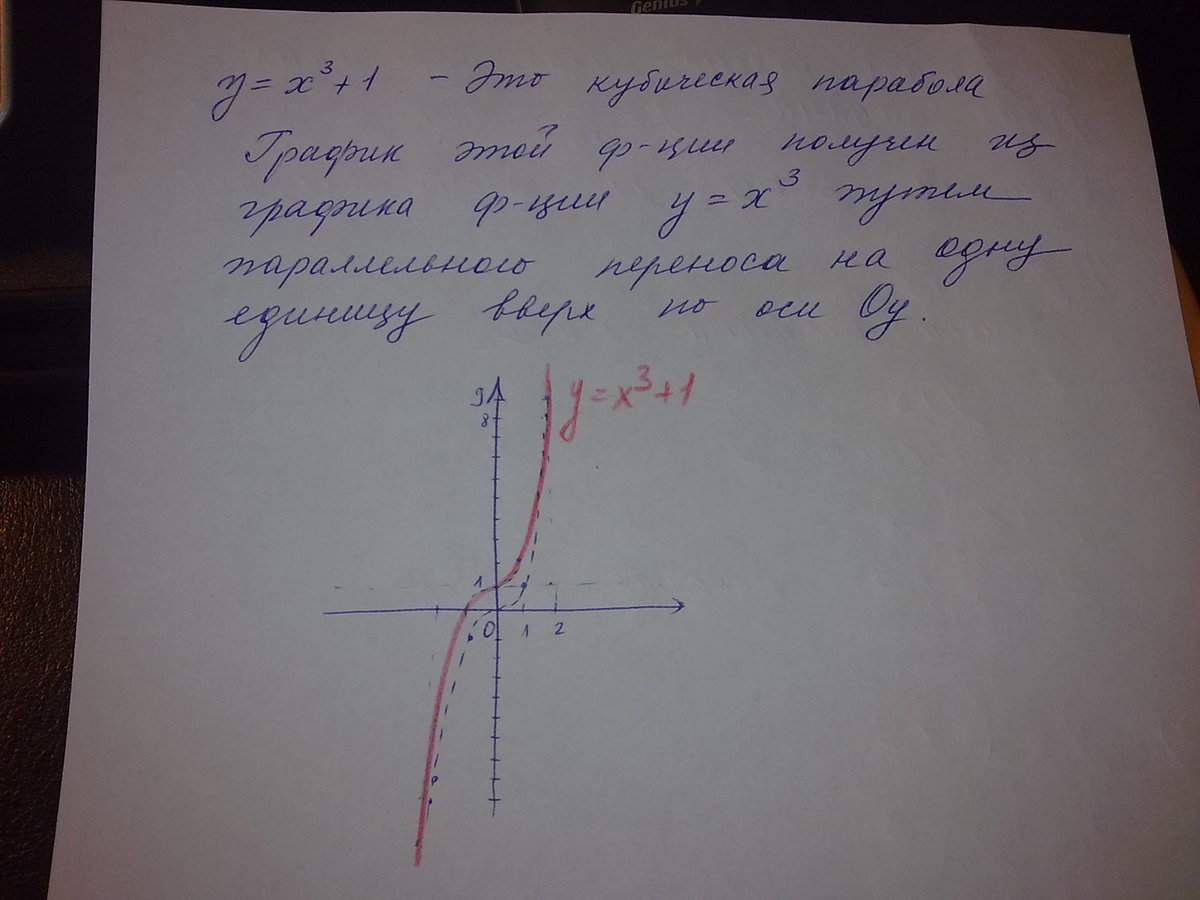 Genius
y = x³ + 1 - Это кубическая парабола
График этой ф-ции получен из
графика ф-ции y = x³ путем
параллельного переноса на одну
единицу вверх по оси Oy.
y = x³ + 1
9
8
1
0 1 2